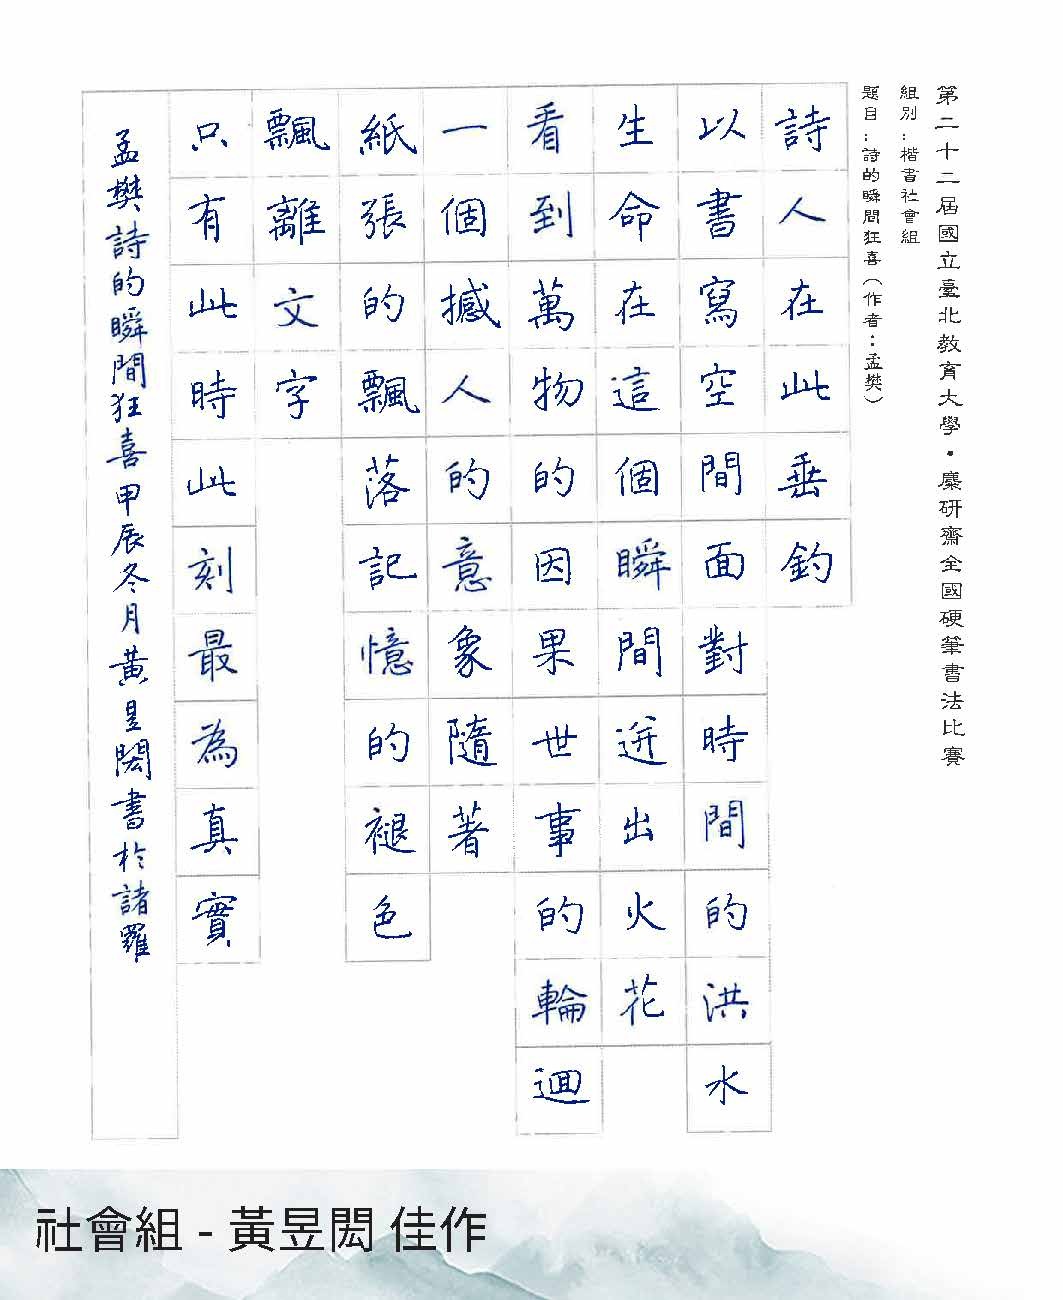 第二十二屆國立臺北教育大學・麋研齋全國硬筆書法比賽
組別：楷書社會組
題目：詩的瞬間狂喜（作者：孟樊）
詩人在此垂釣
以書寫空間面對時間的洪水
生命在這個瞬間迸出火花
看到萬物的因果世事的輪迴
一個撼人的意象隨著
紙張的飄落記憶的褪色
飄離文字
只有此時此刻最為真實
孟樊詩的瞬間狂喜甲辰冬月黃昱閎書於諸羅
社會組 - 黃昱閎 佳作